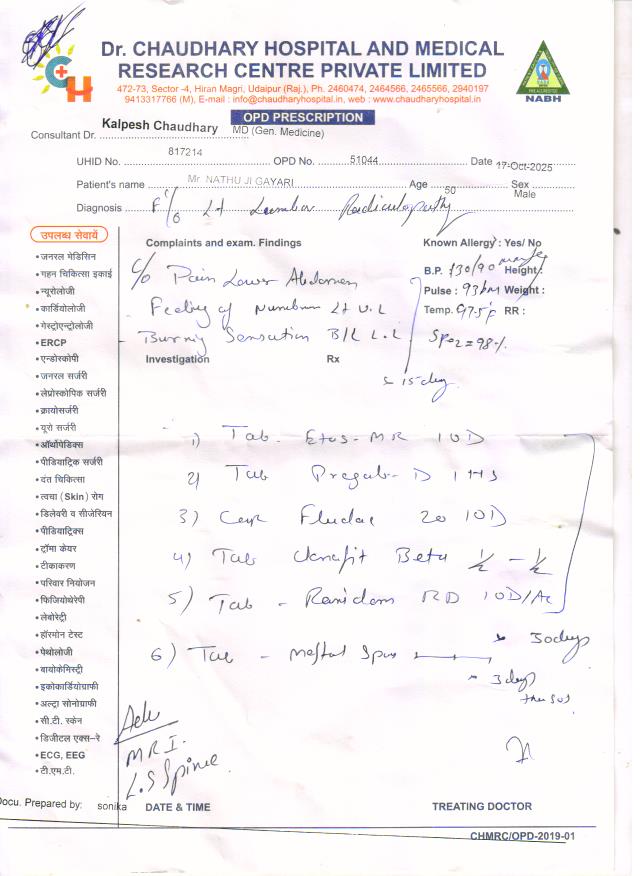 Dr. CHAUDHARY HOSPITAL AND MEDICAL
RESEARCH CENTRE PRIVATE LIMITED
472-73, Sector -4, Hiran Magri, Udaipur (Raj.), Ph. 2460474, 2464566, 2465566, 2940197
9413317766 (M), E-mail : info@chaudharyhospital.in, web : www.chaudharyhospital.in
PRE ACCREDITED
NABH
OPD PRESCRIPTION
Consultant Dr. Kalpesh Chaudhary MD (Gen. Medicine)
UHID No. 817214 OPD No. 51044 Date 17-Oct-2025
Patient's name Mr NATHU JI GAYARI Age 50 Sex Male
Diagnosis F/c/o Lt Lumbar Radiculopathy
उपलब्ध सेवायें
• जनरल मेडिसिन
• गहन चिकित्सा इकाई
• न्यूरोलोजी
• कार्डियोलोजी
• गेस्ट्रोएन्ट्रोलोजी
• ERCP
• एन्डोस्कोपी
• जनरल सर्जरी
• लेप्रोस्कोपिक सर्जरी
• क्रायोसर्जरी
• यूरो सर्जरी
• ऑर्थोपेडिक्स
• पीडियाट्रिक सर्जरी
• दंत चिकित्सा
• त्वचा (Skin) रोग
• डिलेवरी व सीजेरियन
• पीडियाट्रिक्स
• ट्रॉमा केयर
• टीकाकरण
• परिवार नियोजन
• फिजियोथेरेपी
• लेबोरेट्री
• हॉरमोन टेस्ट
• पेथोलोजी
• बायोकेमिस्ट्री
• इकोकार्डियोग्राफी
• अल्ट्रा सोनोग्राफी
• सी.टी. स्केन
• डिजीटल एक्स-रे
• ECG, EEG
• टी.एम.टी.
Complaints and exam. Findings
Known Allergy : Yes/ No
C/o Pain Lower Abdomen
B.P. 130/90 Height :
Pulse : 93 bpm Weight :
Feeling of Numbness Lt U.L
Temp. 97.5°F RR :
Burning Sensation B/L L.L
SPO2 = 98%
Investigation Rx
15 days
1) Tab. Etos-MR 1 OD
2) Tab Pregab-D 1 HS
3) Cap Fludac 20 1 OD
4) Tab Beta ½ - ½
5) Tab - RD 1 OD/AC
30 days
6) Tab - Meftal Spas
3 days
then SOS
Adv
MRI
L.S Spine
Docu. Prepared by: sonika DATE & TIME TREATING DOCTOR
CHMRC/OPD-2019-01